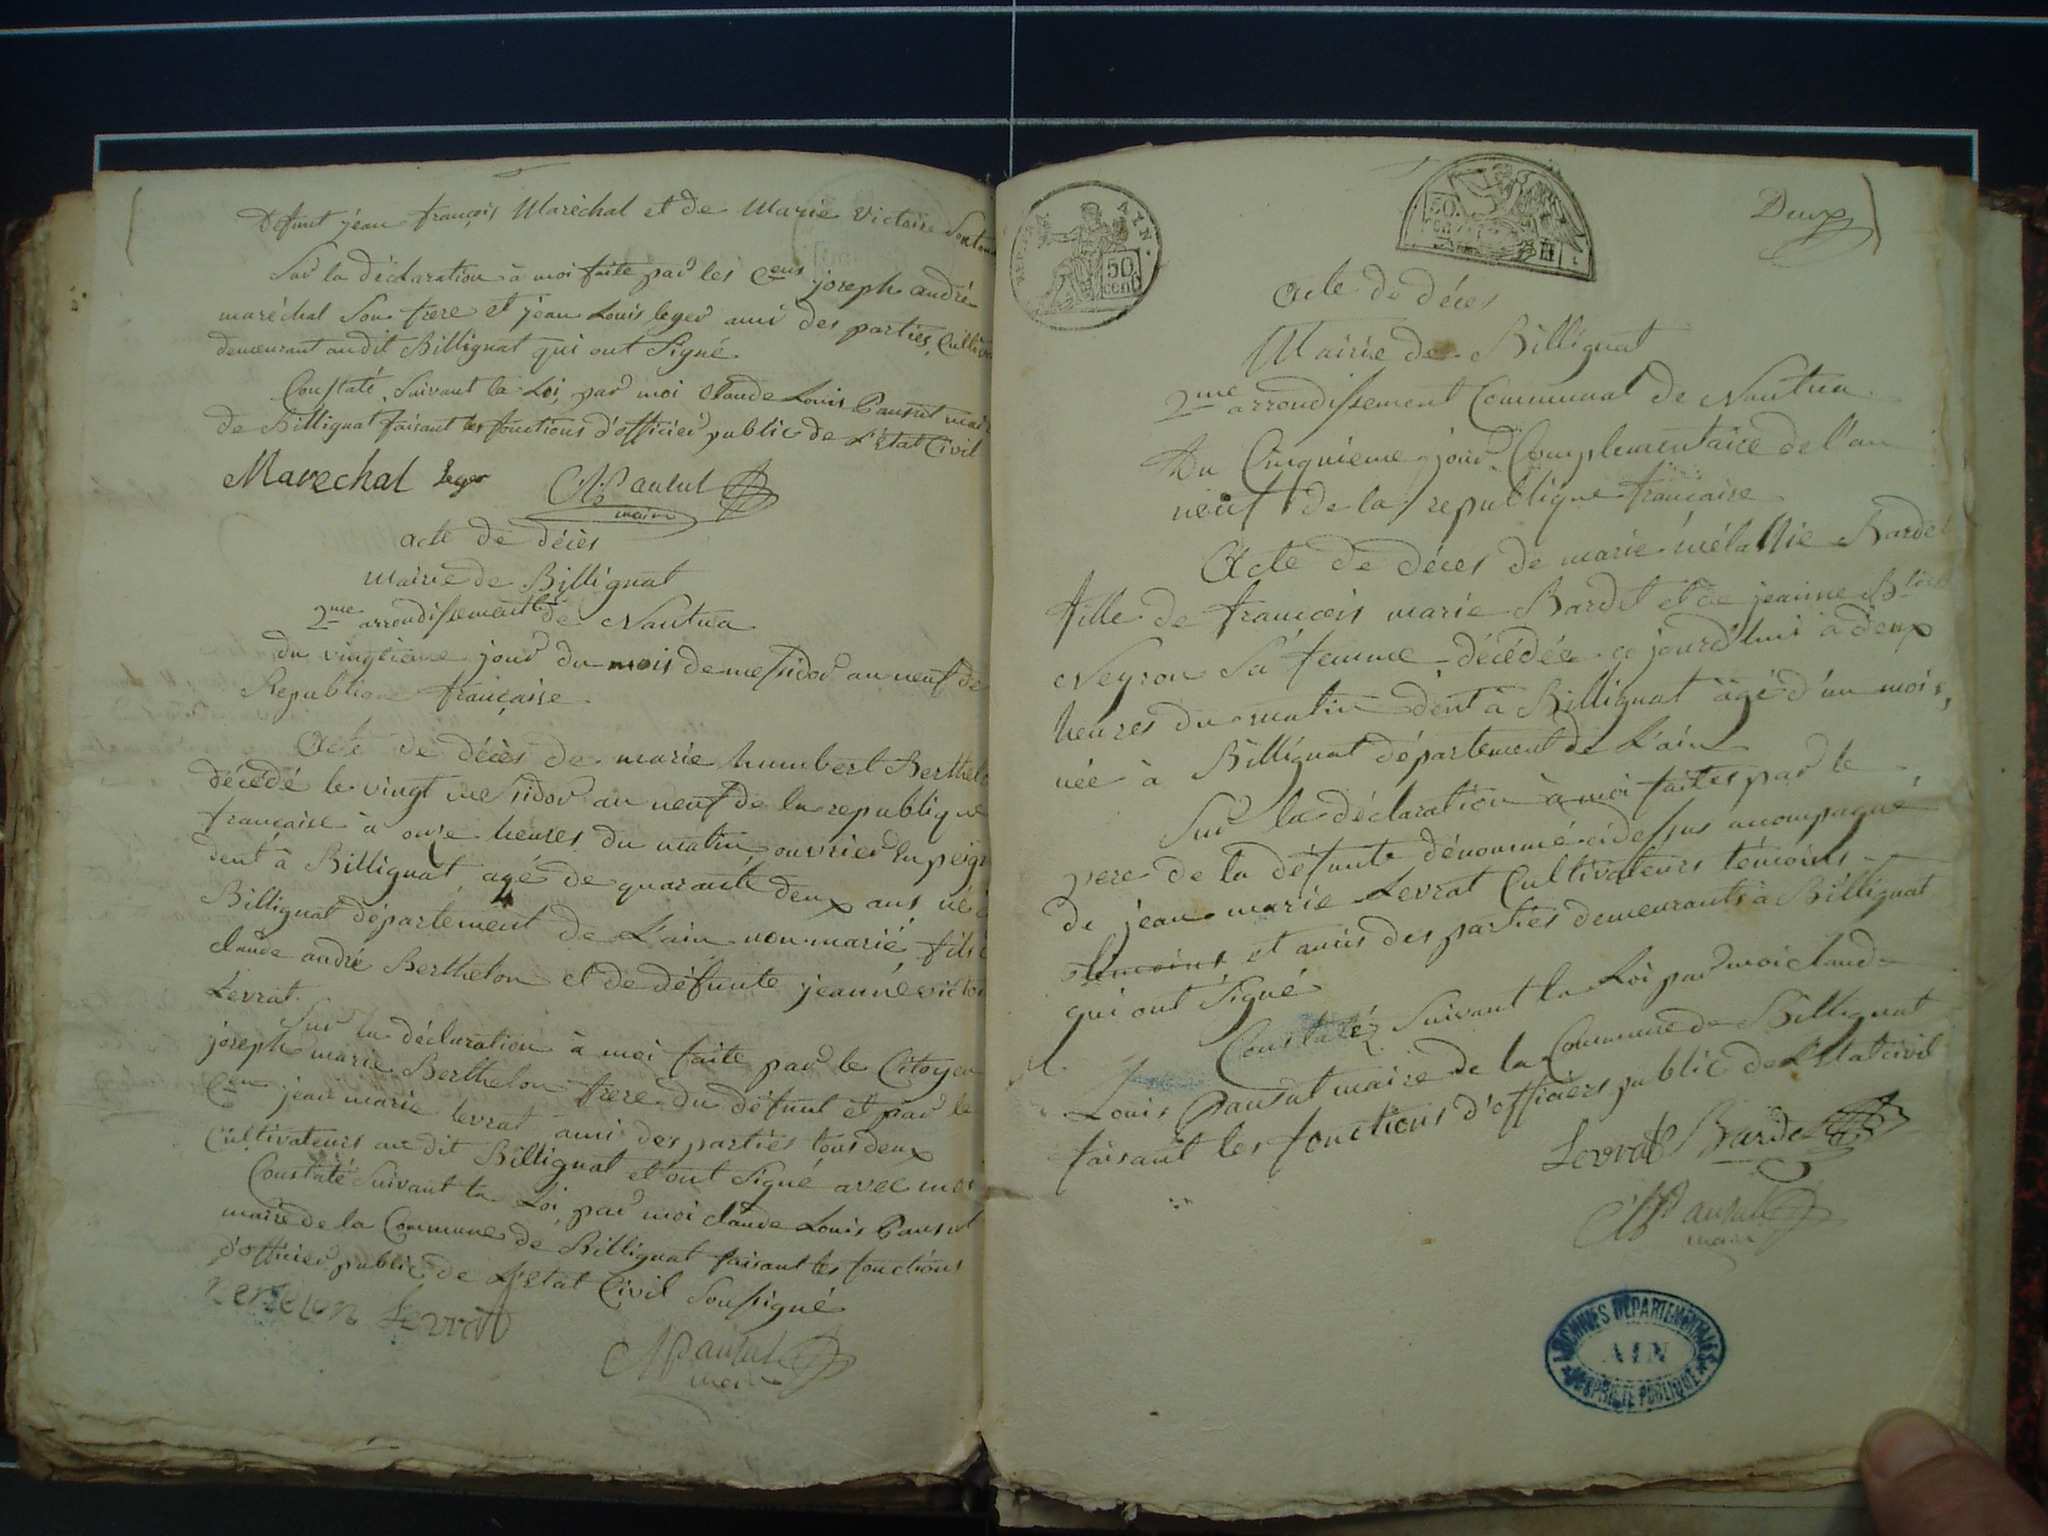 Defunt jean françois Maréchal et de Marie Victoire
Sur la déclaration à moi faite par les Cens joseph andré
maréchal Son frere et jean Louis leger ami des parties,
demeurant audit Billignat qui ont Signé
Constaté Suivant la Loi par moi Claude Louis Pansut
de Billignat faisant les fonctions d'officier public de L'Etat Civil
Marechal Leger Pansut
maire
acte de décès
mairie de Billignat
2me arrondissement de Nantua
du vingtieme jour du mois de messidor an neuf de
Republique française
Acte de décès de marie humbert
décédé le vingt messidor an neuf de la republique
francaise à onze heures du matin ouvrier en
dent à Billignat agé de quarante deux ans né
Billignat département de L'ain non marié, fils
claude andré Berthelon et de défunte jeanne
Levrat.
Sur la déclaration à moi faite par le Citoyen
joseph marie Berthelon frere du défunt et par le
Cen jean marie levrat ami des parties tous deux
Cultivateurs audit Billignat et ont Signé avec moi
Constaté Suivant la Loi par moi claude Louis Pansut
maire de la Commune de Billignat faisant les fonctions
d'officier public de L'Etat Civil Soussigné
Levrat
Pansut
maire
REP. FRA. AIN
50
cent
50
Deux
Acte de décès
Mairie de Billignat
2me arrondissement Communal de Nantua
Du Cinquieme jour Complementaire de l'an
neuf de la republique francaise
Acte de décès de marie mélanie Bardet
fille de francois marie Bardet et de jeanne
Neyron Sa femme, décédée ce jourd'hui à deux
heures du matin dent à Billignat agé d'un mois,
née à Billignat département de L'ain
Sur la déclaration à moi faites par le
pere de la défunte dénommé cidessus accompagné
de jean marie Levrat Cultivateurs témoins
témoins et amis des parties demeurants à Billignat
qui ont Signé
Constatéz Suivant la Loi par moi claude
Louis Pansut maire de la Commune de Billignat
faisant les fonctions d'officiers public de L'Etat civil
Levrat Bardet
Pansut
maire
ARCHIVES DÉPARTEMENTALES
AIN
PROPRIÉTÉ PUBLIQUE